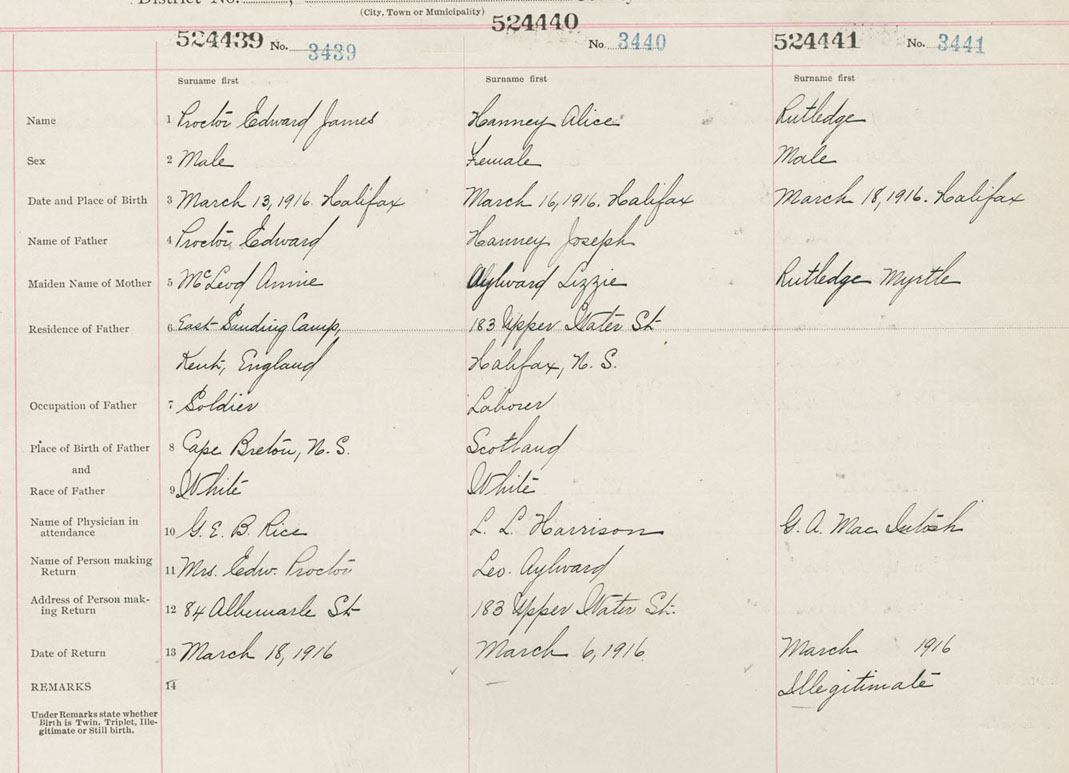 (City, Town or Municipality)
524439 No. 3439 524440 No. 3440 524441 No. 3441
Surname first Surname first Surname first
Name 1 Proctor Edward James Hanney Alice Rutledge
Sex 2 Male Female Male
Date and Place of Birth 3 March 13, 1916. Halifax March 16, 1916. Halifax March 18, 1916. Halifax
Name of Father 4 Proctor Edward Hanney Joseph
Maiden Name of Mother 5 McLeod Annie Aylward Lizzie Rutledge Myrtle
Residence of Father 6 East Sanding Camp, 183 Upper Water St.
Kent, England Halifax, N. S.
Occupation of Father 7 Soldier Laborer
Place of Birth of Father 8 Cape Breton, N. S. Scotland
and
Race of Father 9 White White
Name of Physician in attendance 10 G. E. B. Rice L. L. Harrison G. A. Mac Intosh
Name of Person making Return 11 Mrs. Edw. Proctor Leo. Aylward
Address of Person mak-ing Return 12 84 Albemarle St 183 Upper Water St.
Date of Return 13 March 18, 1916 March 6, 1916 March 1916
REMARKS 14 Illegitimate
Under Remarks state whether
Birth is Twin, Triplet, Ille-
gitimate or Still birth.